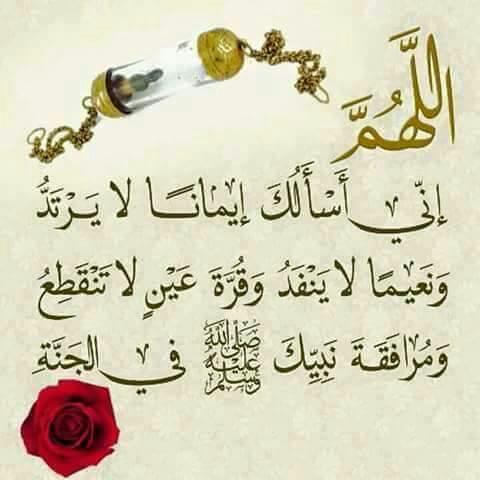 اللَّهُمَّ
إِنِّي أَسْأَلُكَ إِيمَانًا لا يَرْتَدُّ
وَنَعِيمًا لا يَنْفَدُ وَقُرَّةَ عَيْنٍ لا تَنْقَطِعُ
وَمُرَافَقَةَ نَبِيِّكَ صلى الله عليه وسلم في الجَنَّةِ